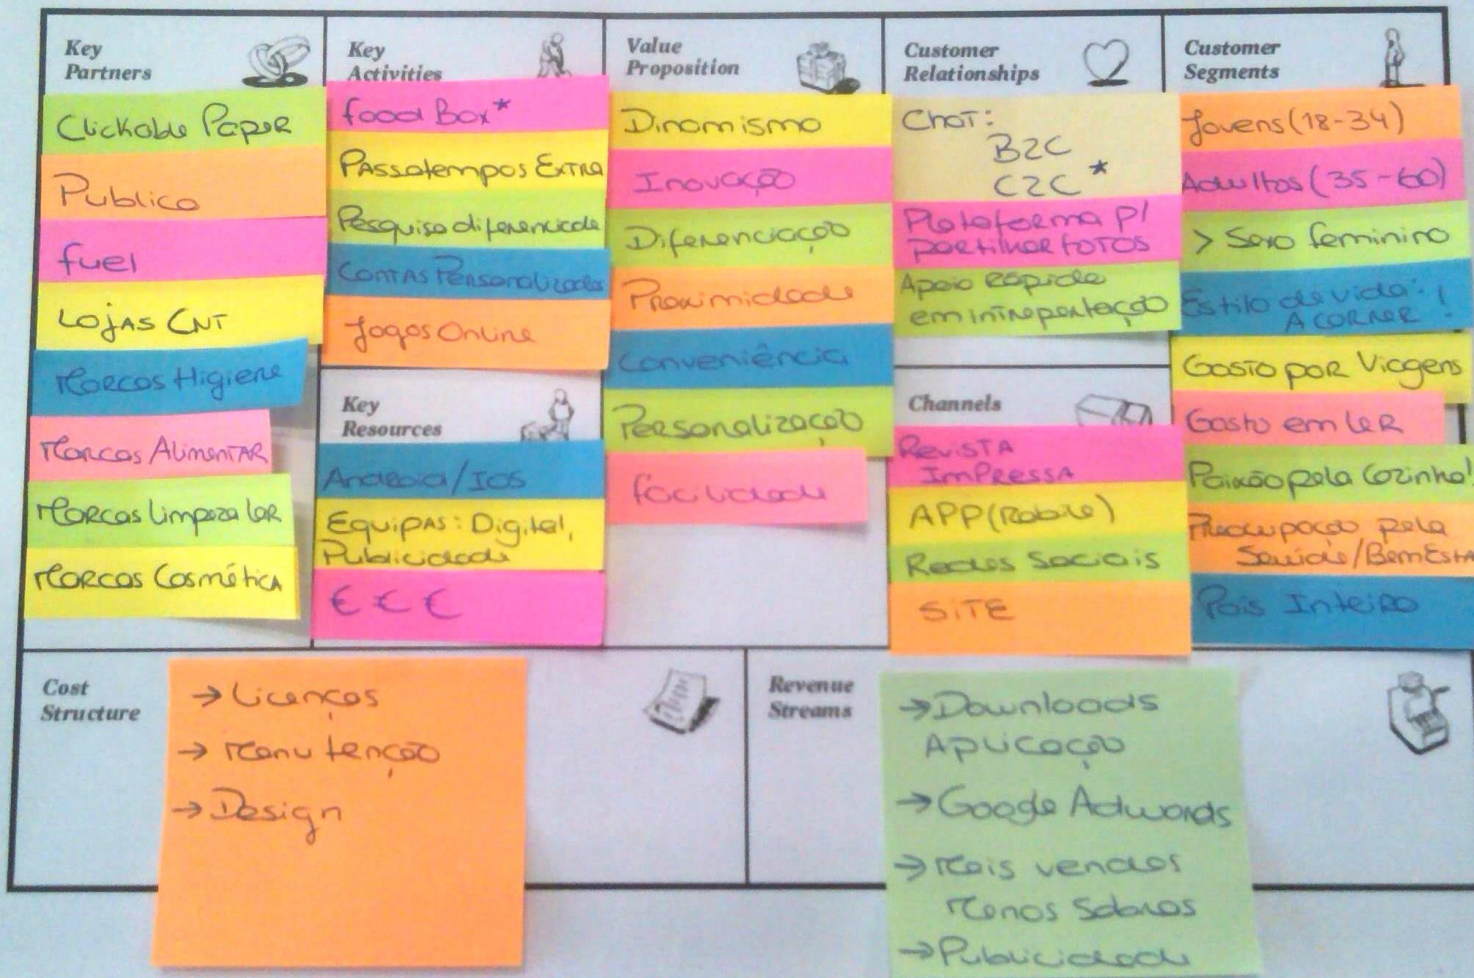 Key
Partners
Clickable Paper
Publico
fuel
Lojas CNT
Marcas Higiene
Marcas Alimentar
Marcas Limpeza Lar
Marcas Cosmética
Key
Activities
food Box*
Passatempos Extra
Pesquisa diferenciada
Contas Personalizadas
Jogos Online
Key
Resources
Android/IOS
Equipas: Digital,
Publicidade
€ € €
Value
Proposition
Dinamismo
Inovação
Diferenciação
Proximidade
Conveniência
Personalização
facilidade
Customer
Relationships
Chat:
B2C
C2C *
Plataforma p/
partilhar fotos
Apoio Rápido
em
Channels
Revista
Impressa
APP (Mobile)
Redes Sociais
SITE
Customer
Segments
Jovens (18-34)
Adultos (35-60)
> Sexo feminino
Estilo de vida:
A CORRER !
Gosto por Viagens
Gosto em LER
Paixão pela Cozinha!
Preocupação pela
Saúde/BemEsta
País Inteiro
Cost
Structure
→ Licenças
→ Manutenção
→ Design
Revenue
Streams
→ Downloads
Aplicação
→ Google Adwords
→ Mais vendas
Menos Sobras
→ Publicidade